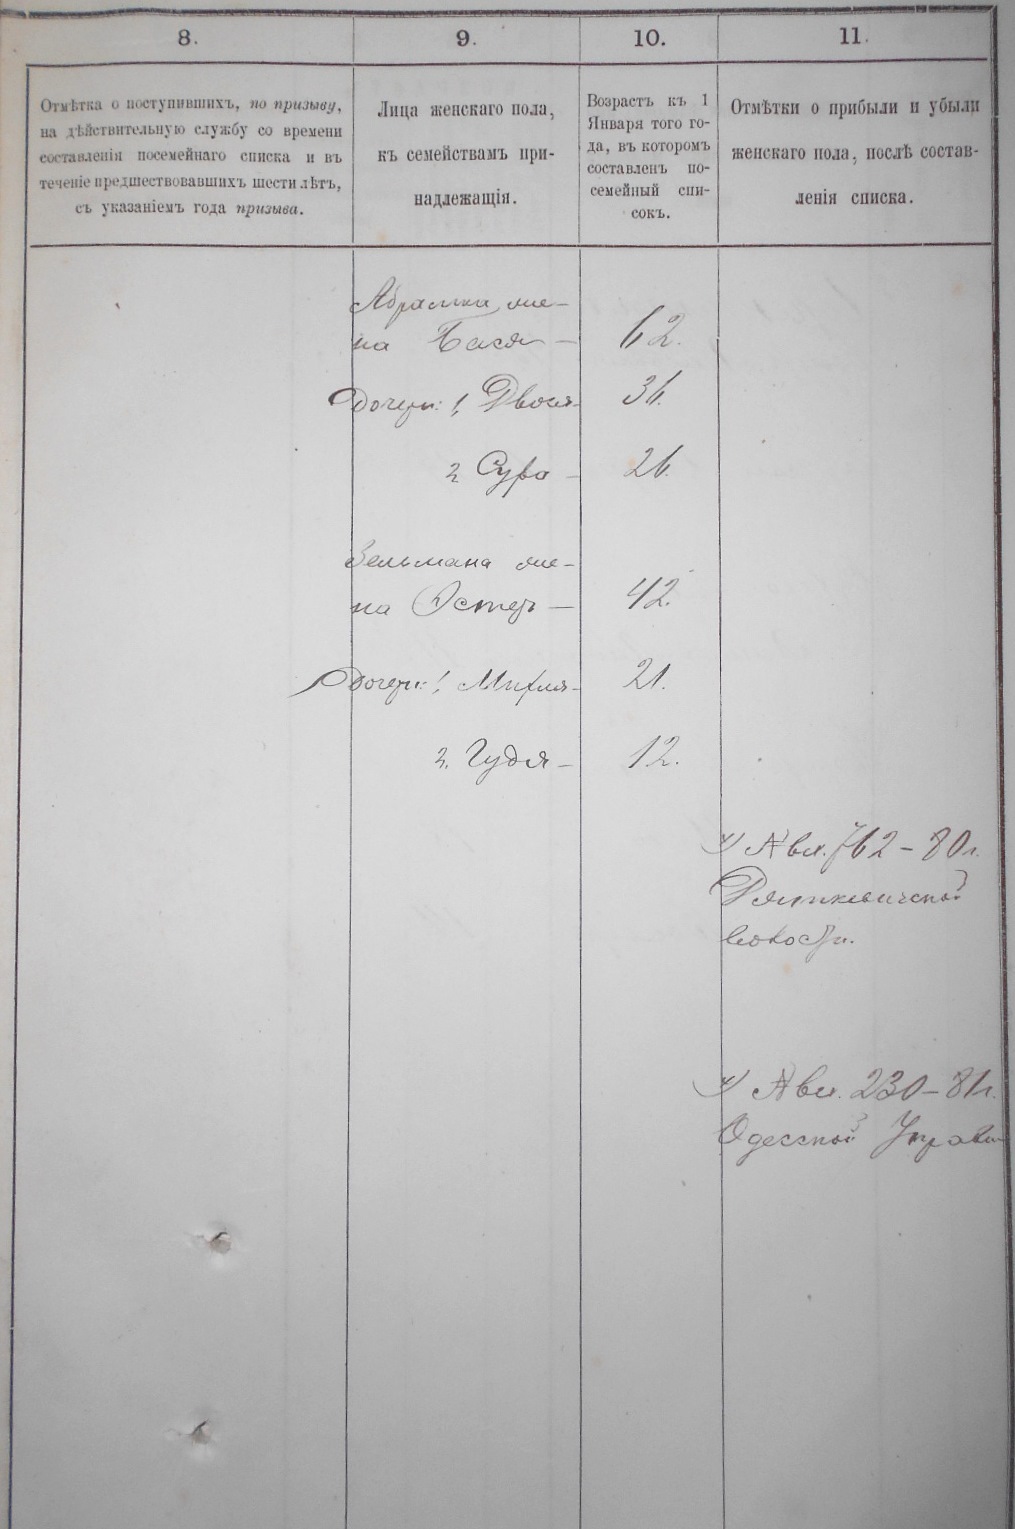 8.
9.
10.
11.
Отмѣтка о поступившихъ, по призыву,
на дѣйствительную службу со времени
составленія посемейнаго списка и въ
теченіе предшествовавшихъ шести лѣтъ,
съ указаніемъ года призыва.
Лица женскаго пола,
къ семействамъ при-
надлежащія.
Возрастъ къ 1
Января того го-
да, въ которомъ
составленъ по-
семейный спи-
сокъ.
Отмѣтки о прибыли и убыли
женскаго пола, послѣ состав-
ленія списка.
Абрамка же-
на Бася — 62.
Дочери: 1, Двося - 36.
2, Сура - 26.
Зельмана же-
на Эстер — 42.
Дочери: 1, Михля - 21.
2. Гудя - 12.
762 - 80 г.
волости.
230 - 81 г.
Одесской Управы